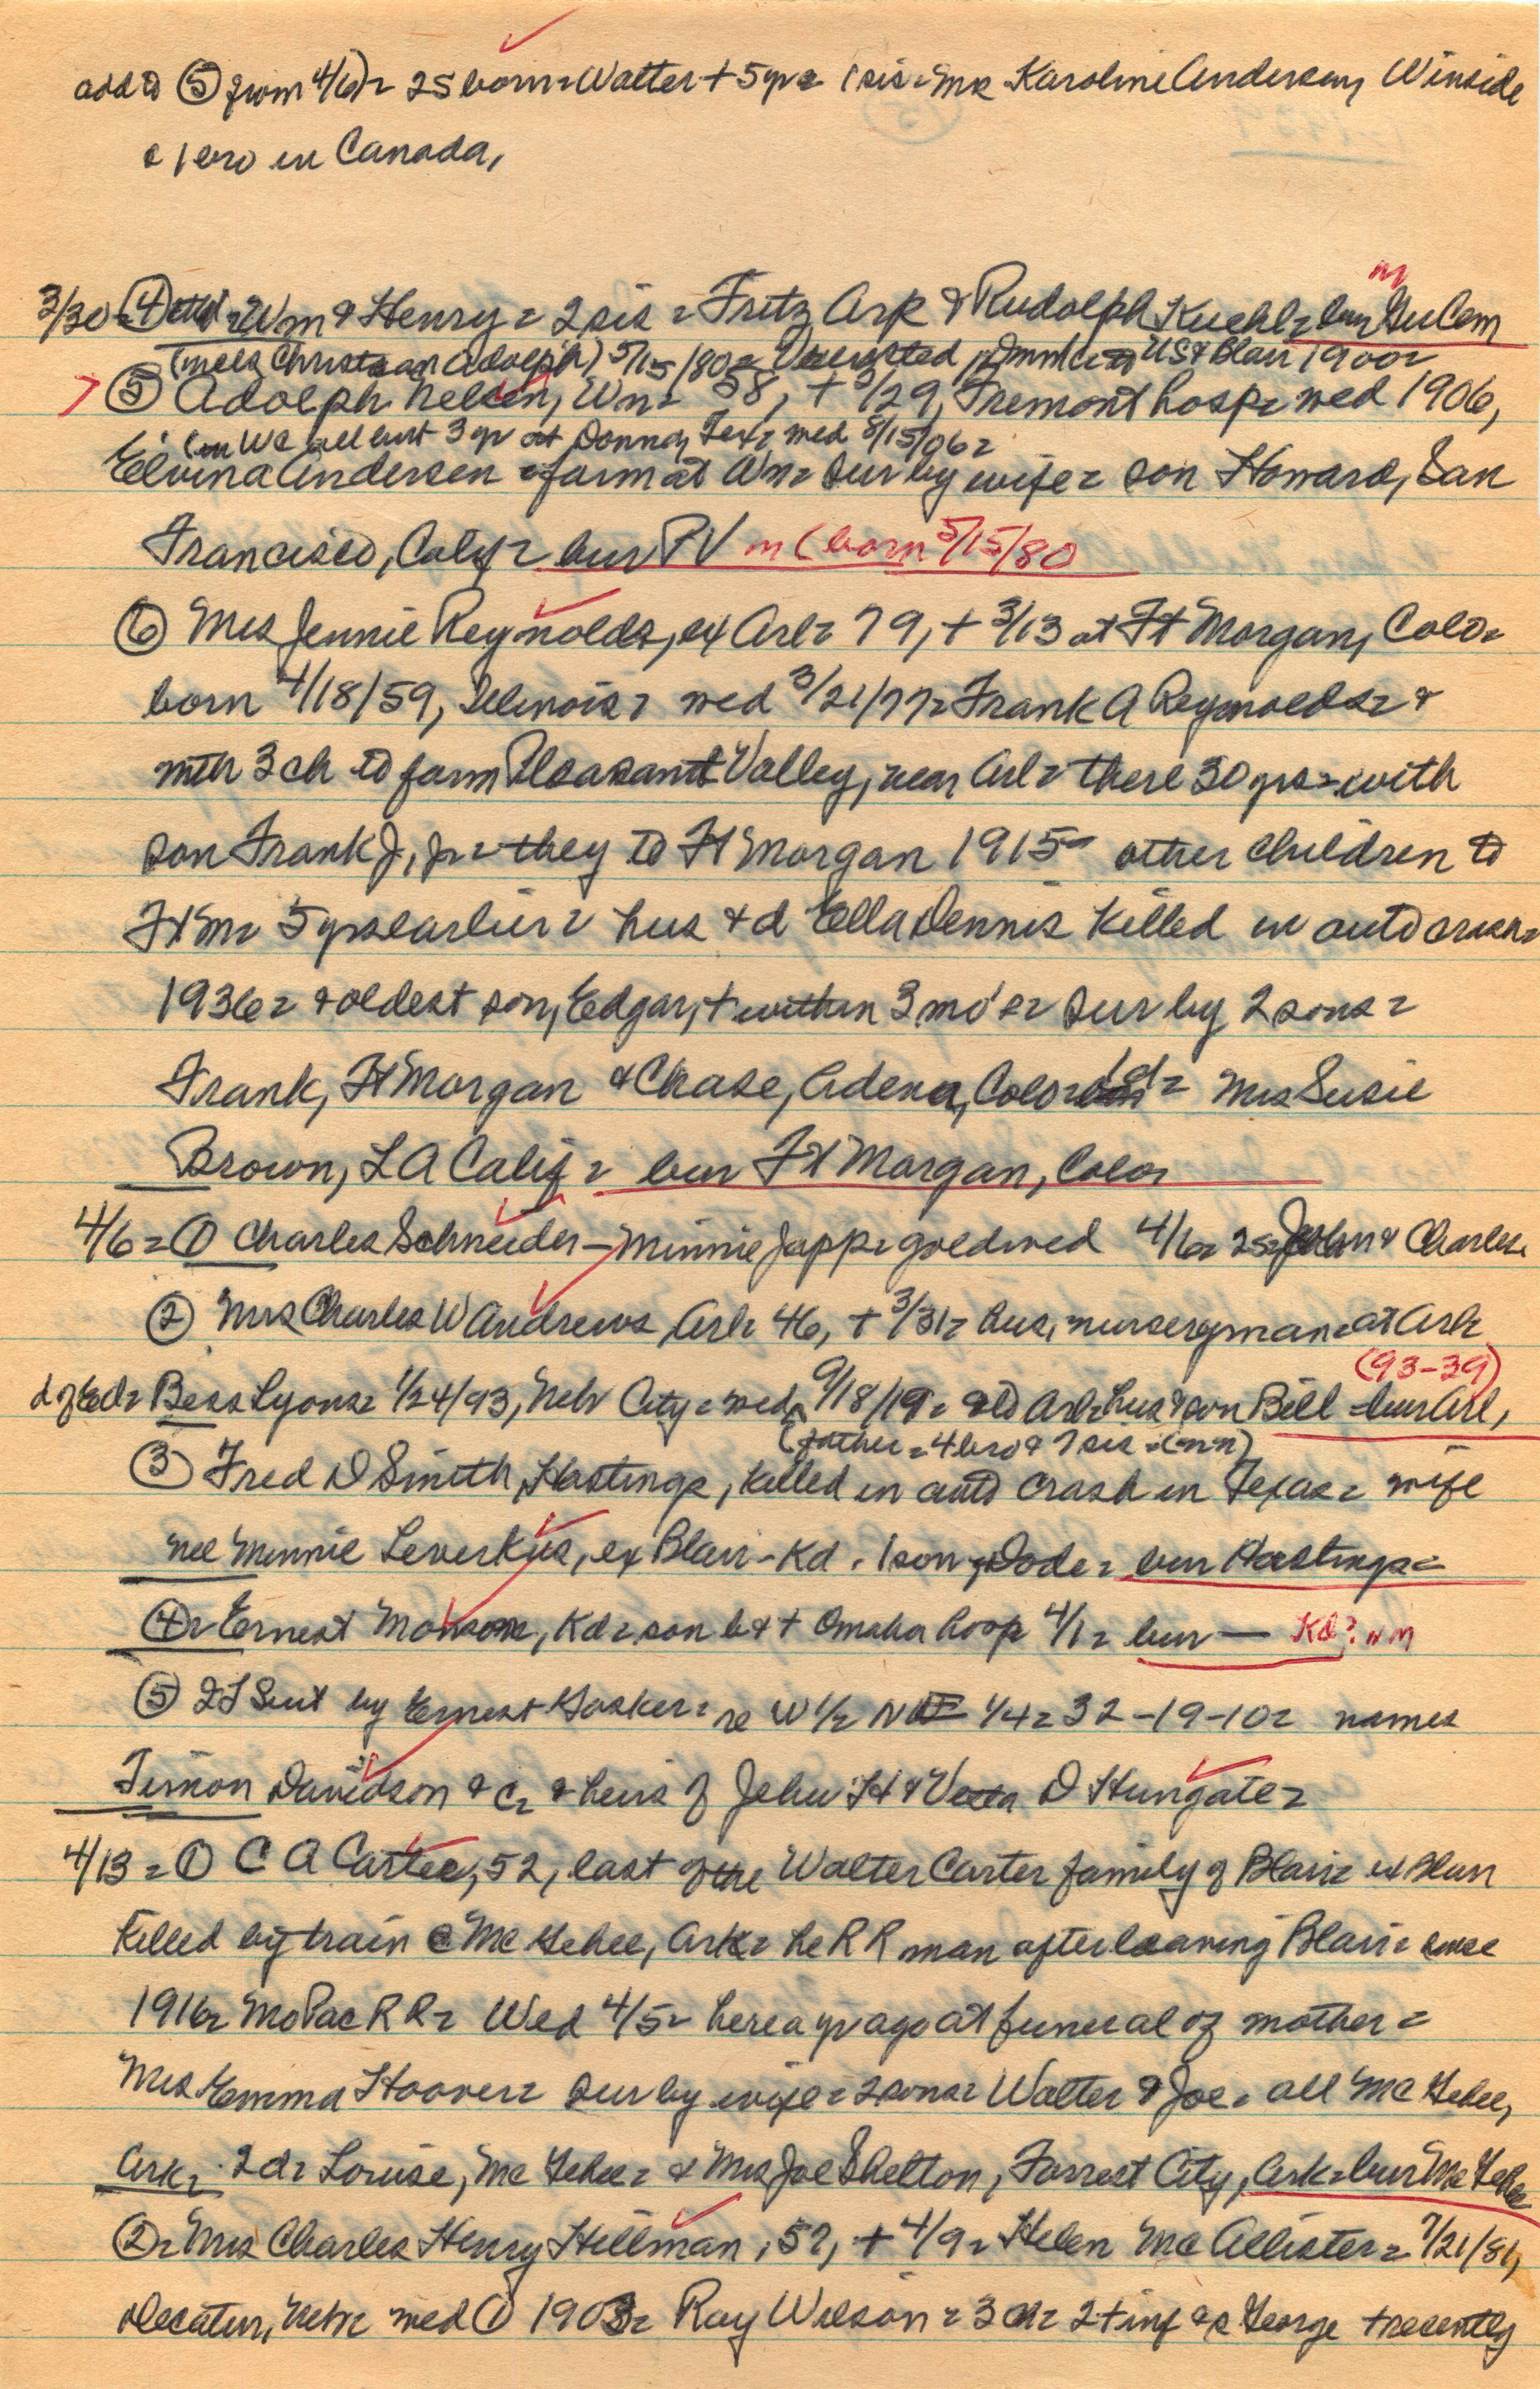 add to ⑤ from 4/6)= 2S born= Walter + 5yr= 1 sis= Mrs Karoline Andersen, Winside
& 1 bro in Canada,
m
3/30 = ④ = Wm & Henry = 2 sis = Fritz Arp & Rudolph Kuehl= bur Ger Cem
(Niels Christian Adolph) 5/15/80= to US & Blair 1900=
⑤ Adolph Nelsen, Wn= 58, + 3/29, Fremont hosp= wed 1906,
(in WC all but 3 yr at Donna, Tex= wed 8/15/06=
Elvina Andersen = farm at Wn= sur by wife= son Howard, San
Francisco, Calif= bur PV m (born 5/15/80
⑥ Mrs Jennie Reynolds, ex Arl= 79, + 3/13 at Ft Morgan, Colo=
born 4/18/59, Illinois= wed 3/21/77= Frank A Reynolds= &
with 3 ch to farm Pleasant Valley, near Arl= there 30 yrs= with
son Frank J, Jr= they to Ft Morgan 1915= other children to
Ft M= 5 yrs earlier= hus & d Ella Dennis killed in auto crash=
1936= & oldest son, Edgar, + within 3 mo's= sur by 2 sons=
Frank, Ft Morgan & Chase, Adena, Colo= 1d= Mrs Susie
Brown, LA Calif= bur Ft Morgan, Colo=
4/6 = ① Charles Schneider - Minnie Japp= gold wed 4/6= 2s= John & Charles=
② Mrs Charles W Andrews, Arl= 46, + 3/31= hus, nurseryman= at Arl=
(93-39)
d of Ed= Bess Lyons= 1/24/93, Neb City= wed 9/18/19= & to Arl= hus & son Bill = bur Arl,
(father = 4 bro & 7 sis = (nn)
③ Fred D Smith, Hastings, killed in auto crash in Texas= wife
nee Minnie Leverkus, ex Blair - Kd. 1 son, Dode= bur Hastings=
④= Ernest Monson, Kd= son b & + Omaha hosp 4/1= bur — Kd? nm
⑤ QT Suit by Ernest Gosker= re W 1/2 NE 1/4= 32-19-10= names
Timon Davidson & Co & heirs of John H & Vesta D Hungate=
4/13 = ① C A Carter, 52, last of the Walter Carter family of Blair= ex Blair
killed by train @ McGehee, Ark= he RR man after leaving Blair= since
1916= MoPac RR= Wed 4/5= here a yr ago at funeral of mother=
Mrs Emma Hoover= sur by wife= 2 sons= Walter & Joe= all McGehee,
Ark= 2d= Louise, McGehee= & Mrs Joe Shelton, Forrest City, Ark= bur McGehee
②= Mrs Charles Henry Hillman, 57, + 4/9= Helen McAllister= 7/21/81,
Decatur, Neb= wed ① 1903= Ray Wilson= 3 ch= 2 + inf & s George + recently